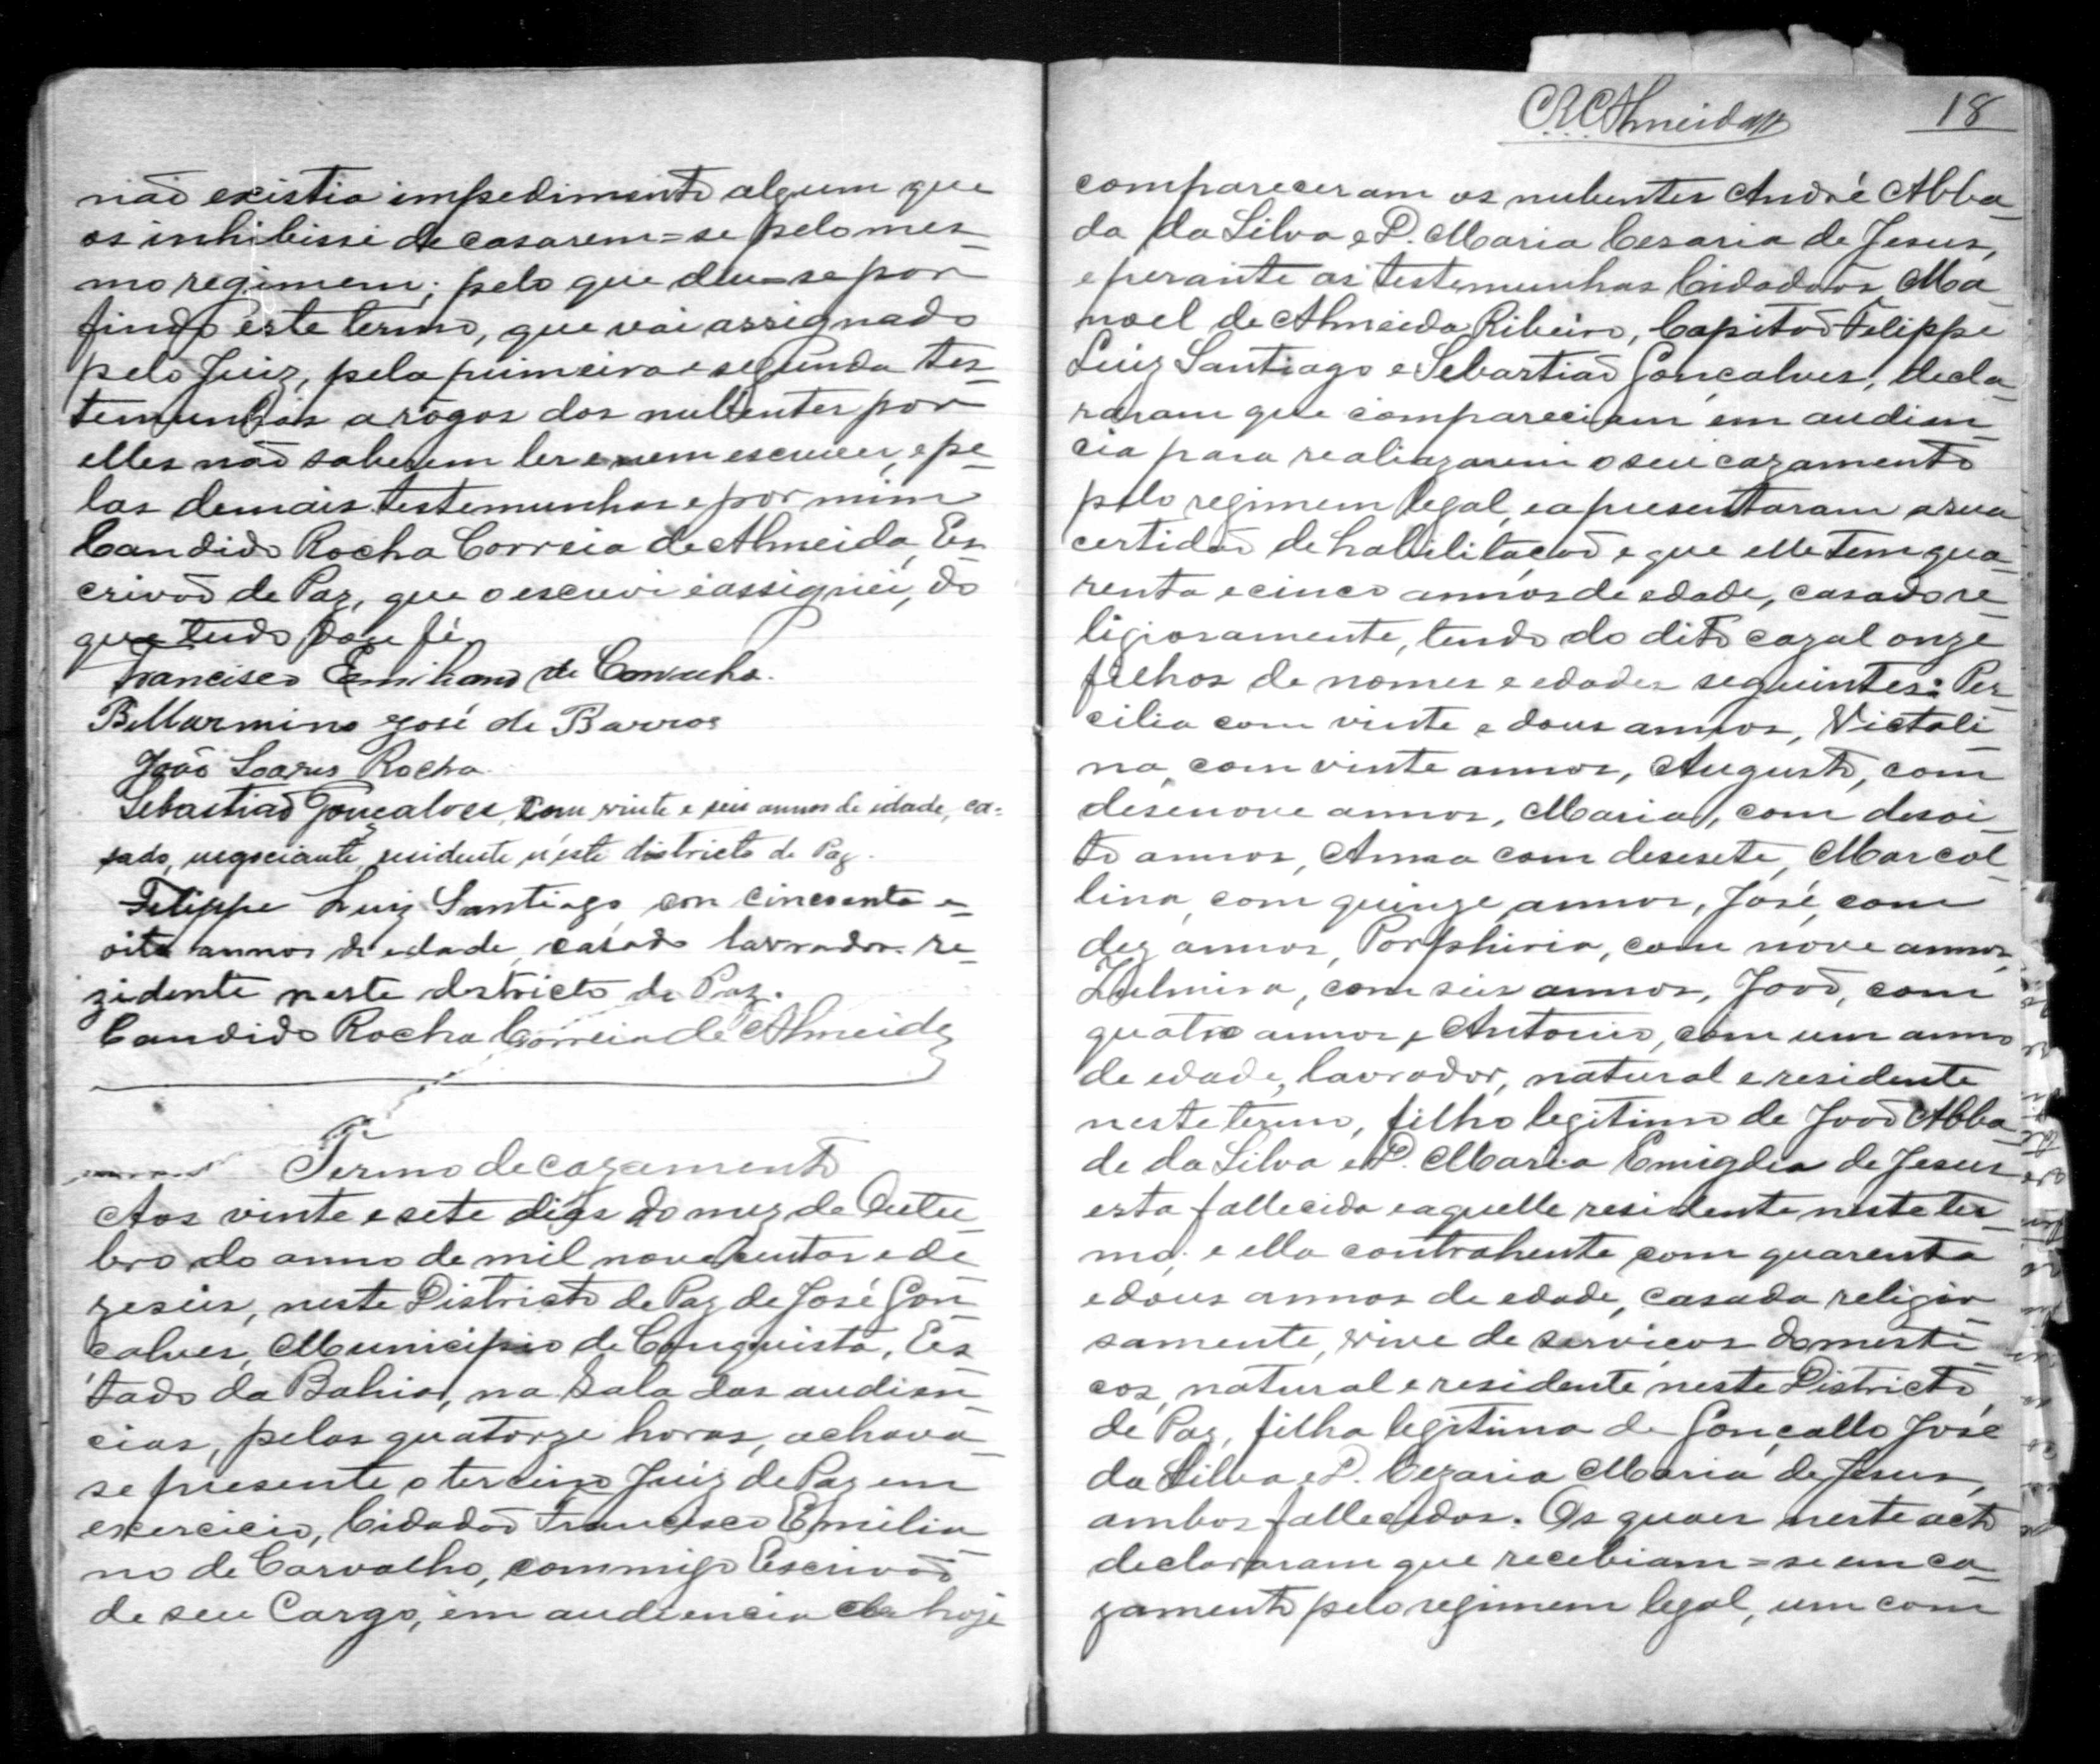 não existia impedimento algum que
os inhibissi de casarem=se pelo mes-
mo regimem; pelo que deu=se por
findo este termo, que vai assignado
pelo Juiz, pela primeira e segunda tes-
temunhas a rogos dos nubentes por
elles não saberem ler e nem escrever, e pe-
las demais testemunhas e por mim
Candido Rocha Correia de Almeida, Es-
crivão de Paz, que o escrevi e assignei, do
que tudo dou fé.
Francisco Emiliano de Carvalho.
Bellarmino José de Barros
João Soares Rocha
Sebastião Gonçalves, com vinte e seis annos de idade, ca=
sado, negociante, residente n'este districto de Paz.
Filippe Luiz Santiago con cincoenta e
oito annos de edade, casado lavrador. re-
zidente neste destricto de Paz.
Candido Rocha Correia de Almeida
Termo de cazamento
Aos vinte e sete dias do mez de Outu-
bro do anno de mil novecentos e de-
zeseis, neste Districto de Paz de José Gon-
çalves, Municipio de Conquista, Es-
tado da Bahia, na Sala das audien-
cias, pelas quatorze horas, achava-
se presente o terceiro Juiz de Paz em
exercicio, Cidadão Francisco Emilia-
no de Carvalho, commigo Escrivão
de seu Cargo, em audiencia de hoje
CRCAlmeida 18
compareceram os nubentes André Abba-
da da Silva e D. Maria Cesaria de Jesus,
e perante as testemunhas Cidadãos Ma-
noel de Almeida Ribeiro, Capitão Filippe
Luiz Santiago e Sebastião Gonçalves, decla-
raram que compareciam em audien-
cia para realizarem o seu cazamento
pelo regimem legal, e apresentaram a sua
certidão de habilitação e que elle tem qua-
renta e cinco annos de edade, casado re-
ligiosamente, tendo do dito cazal onze
filhos de nomes e edades seguintes: Per-
cilia com vinte e dous annos, Victali-
na, com vinte annos, Augusto, com
desenove annos, Maria, com desoi-
to annos, Anna com desesete, Marcol-
lina, com quinze annos, José, com
dez annos, Porphiria, com nove annos,
Zulmira, com seis annos, João, com
quatro annos e Antonio, com um anno
de edade, lavrador, natural e residente
neste termo, filho legitimo de João Abba-
de da Silva e D. Maria Emigdia de Jesus
esta fallecida e aquelle residente neste ter-
mo; e ella contrahente com quarenta
e dous annos de edade, casada religio-
samente, vive de serviços domesti-
cos, natural e residente neste Districto
de Paz, filha legitima de Gonçallo José
da Silva e D. Cezaria Maria de Jesus,
ambos fallecidos. Os quaes neste acto
declararam que recebiam=se em ca-
zamento pelo regimem legal, um com